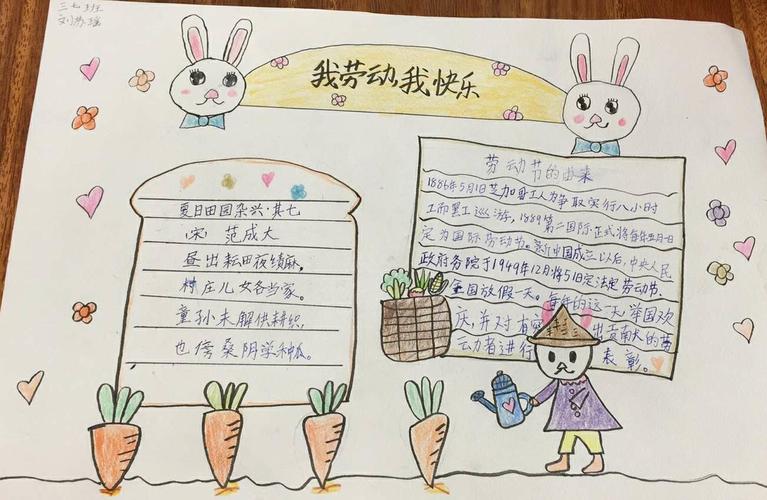 三七班
刘苏瑶
我劳动,我快乐
夏日田园杂兴·其七
宋 范成大
昼出耘田夜绩麻,
村庄儿女各当家。
童孙未解供耕织,
也傍桑阴学种瓜。
劳动节的由来
1886年5月1日芝加哥工人为争取实行八小时
工而罢工巡游,1889第二国际正式将每年五月一日
定为国际劳动节。新中国成立以后,中央人民
政府务院于1949年12月将5月1日定法定劳动节,
全国放假一天。每年的这一天,举国欢
庆,并对有 出贡献的劳
动者进行 表彰。